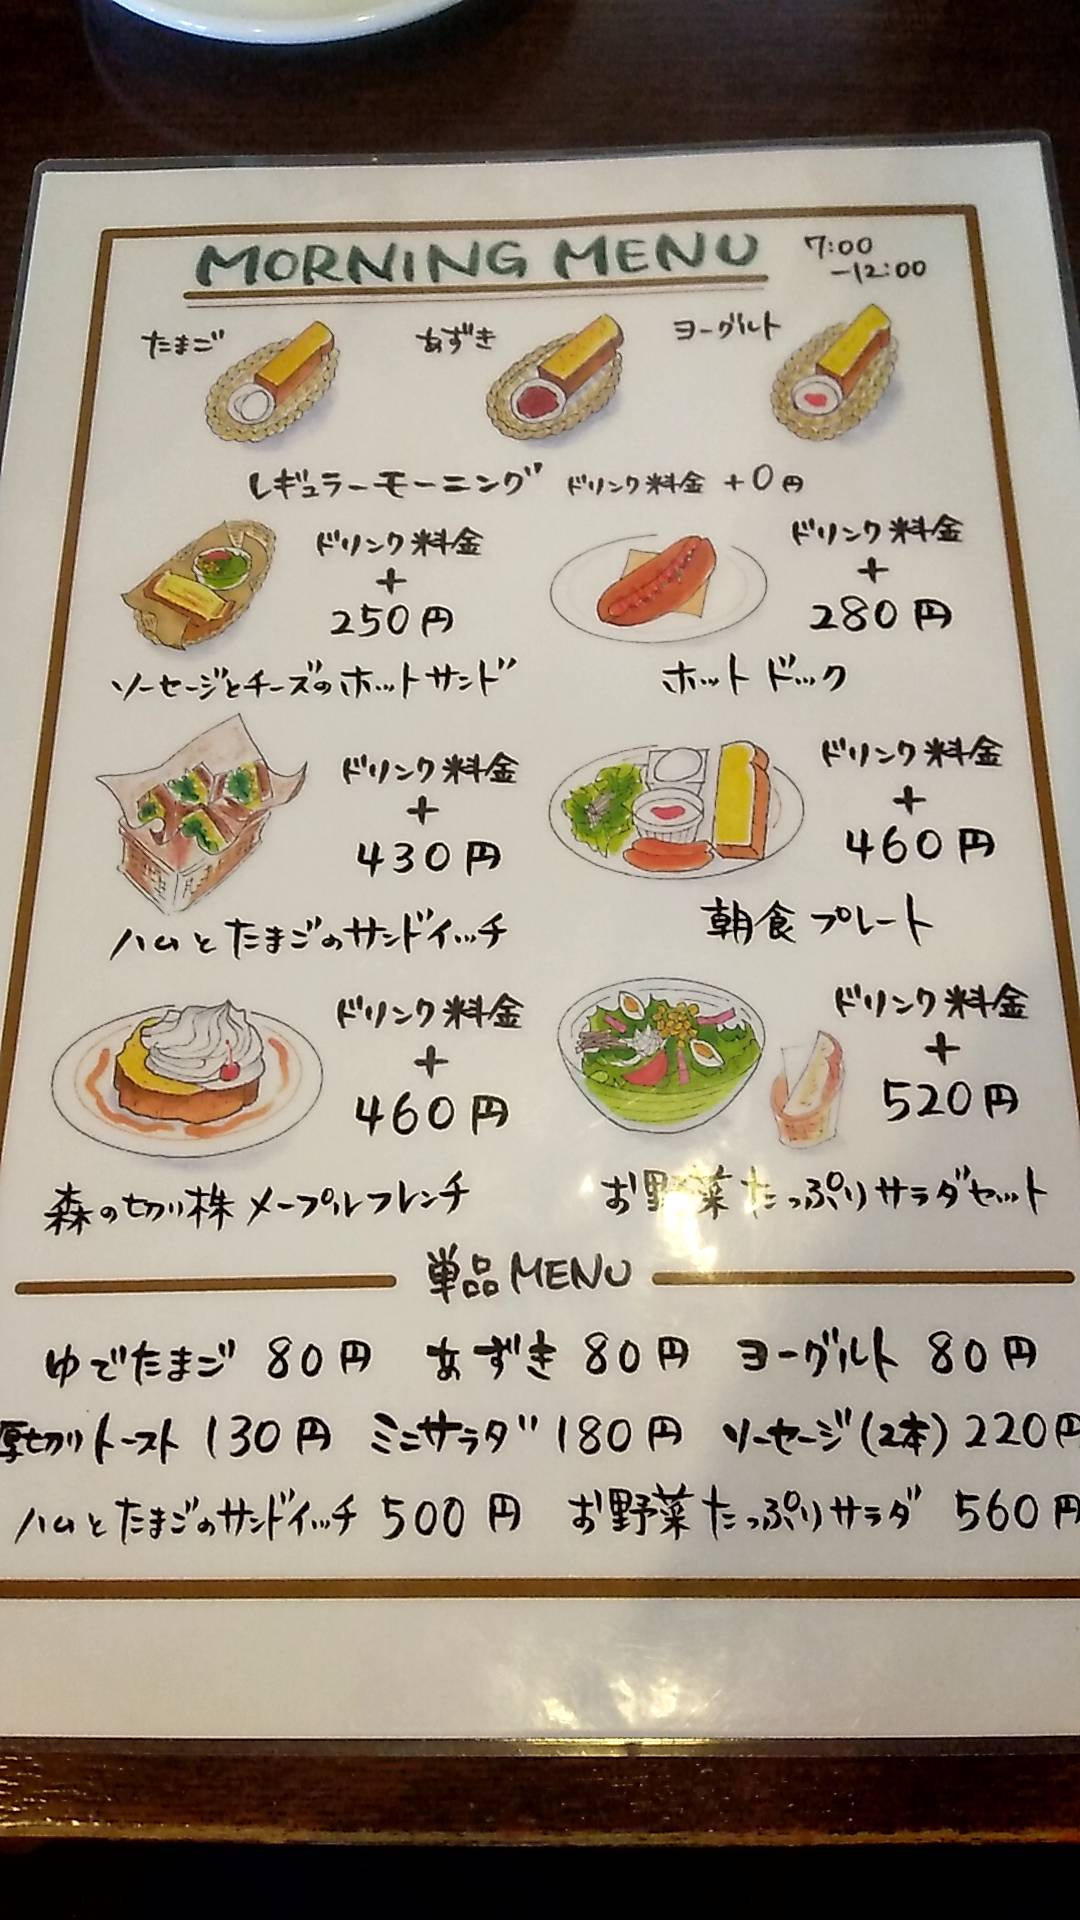 MORNING MENU 7:00
-12:00
たまご あずき ヨーグルト
レギュラーモーニング ドリンク料金 +0円
ドリンク料金
+
250円
ソーセージとチーズのホットサンド
ドリンク料金
+
280円
ホットドック
ドリンク料金
+
430円
ハムとたまごのサンドイッチ
ドリンク料金
+
460円
朝食プレート
ドリンク料金
+
460円
森の切り株メープルフレンチ
ドリンク料金
+
520円
お野菜たっぷりサラダセット
単品MENU
ゆでたまご 80円 あずき 80円 ヨーグルト 80円
厚切りトースト 130円 ミニサラダ 180円 ソーセージ(2本) 220円
ハムとたまごのサンドイッチ 500円 お野菜たっぷりサラダ 560円